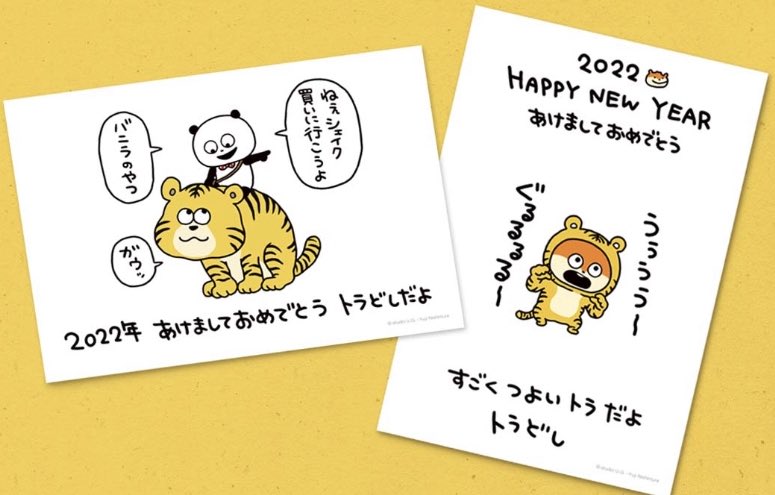 ねぇシェイク
買いに行こうよ
バニラのやつ
ガウッ
2022年 あけましておめでとう トラどしだよ
2022
HAPPY NEW YEAR
あけましておめでとう
うぅぅぅ〜
ぐるるるる〜
すごく つよい トラ だよ
トラどし